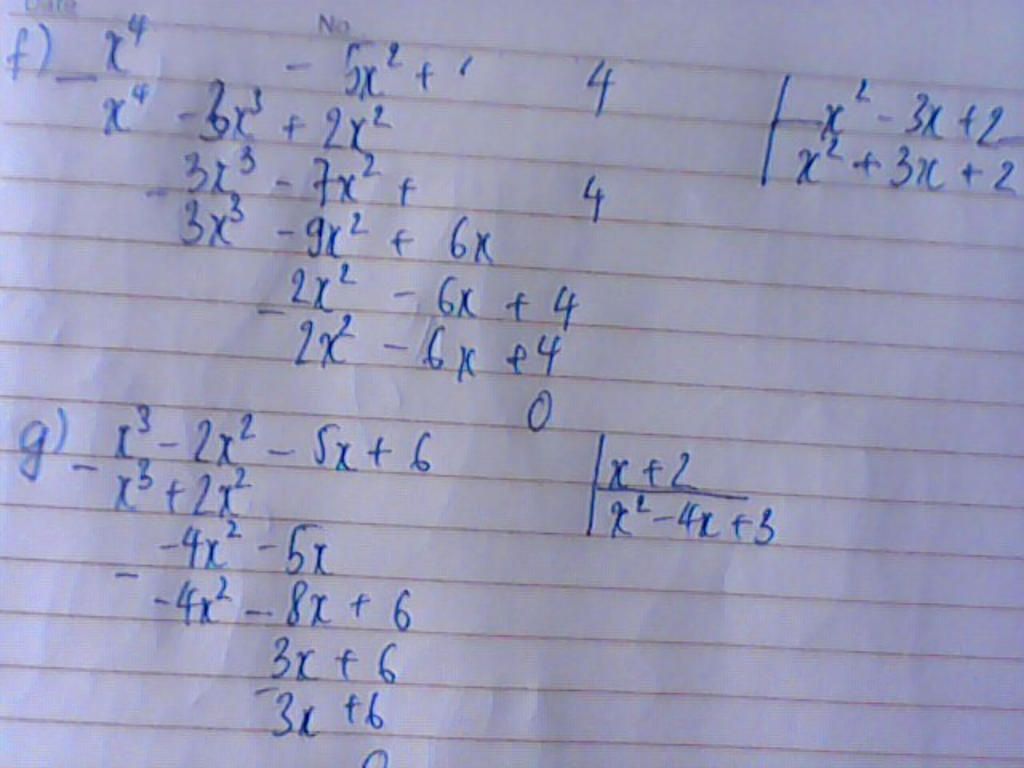 No
f) - x⁴ - 5x² + 4 | x² - 3x + 2
x⁴ - 3x³ + 2x² | x² + 3x + 2
- 3x³ - 7x² + 4
3x³ - 9x² + 6x
- 2x² - 6x + 4
2x² - 6x + 4
0
g) - x³ - 2x² - 5x + 6 | x + 2
x³ + 2x² | x² - 4x + 3
- -4x² - 5x
-4x² - 8x + 6
- 3x + 6
3x + 6
0